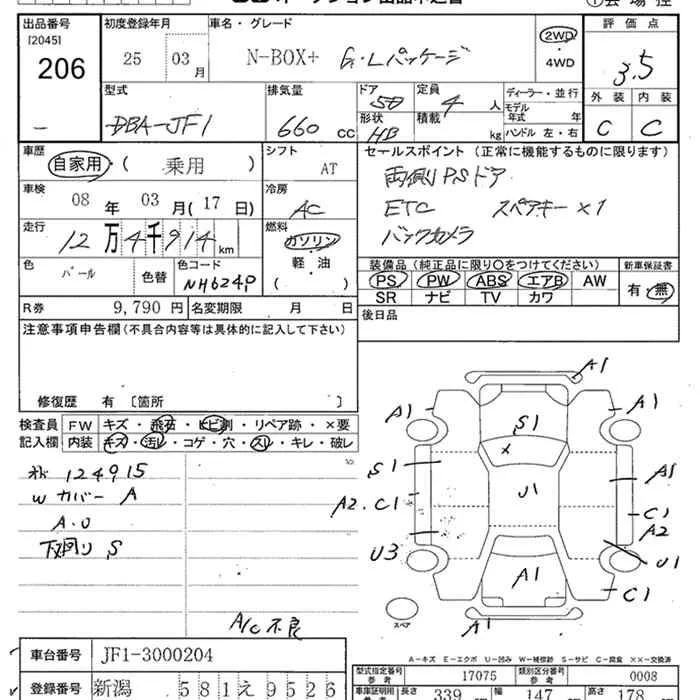 出品番号 [2045] 206
初度登録年月 25 03 月
車名・グレード N-BOX+ G・Lパッケージ
2WD 4WD
評価点 3.5
外装 C 内装 C
型式 DBA-JF1
排気量 660 cc
ドア 5D 形状 HB
定員 4 人 積載 kg
ディーラー・並行
モデル年式 年
ハンドル 左・右
車歴 自家用・( 乗用 )
シフト AT
車検 08 年 03 月(17 日)
冷房 AC
走行 12 万 4 千 914 km
燃料 ガソリン・軽・油 ( )
色 パール 色替 色コード NH624P
R券 9,790 円 名変期限 月 日
セールスポイント (正常に機能するものに限ります)
両側PSドア
ETC スペアキー×1
バックカメラ
装備品 (純正品に限り○をつけてください)
PS PW ABS エアB AW
SR ナビ TV カワ
新車保証書 有・無
後日品
注意事項申告欄(不具合内容等は具体的に記入して下さい)
修復歴 有 〔箇所
検査員記入欄
FW キズ・飛石・ヒビ割・リペア跡・×要
内装 キズ・汚レ・コゲ・穴・スレ・キレ・破レ
124915
Wカバー A
A.U
下廻り S
A/C不良
A1
A1 A1
S1
S1 A1
U1
A2.C1 C1
A2
U3 U1
A1 C1
スペア A1
A-キズ E-エクボ U-凹み W-補修跡 S-サビ C-腐食 ××-交換済
車台番号 JF1-3000204
登録番号 新潟 581え9526
型式指定番号 参考 17075 類別区分番号 参考 0008
車庫証明用 参考 長さ 339 幅 147 高さ 178